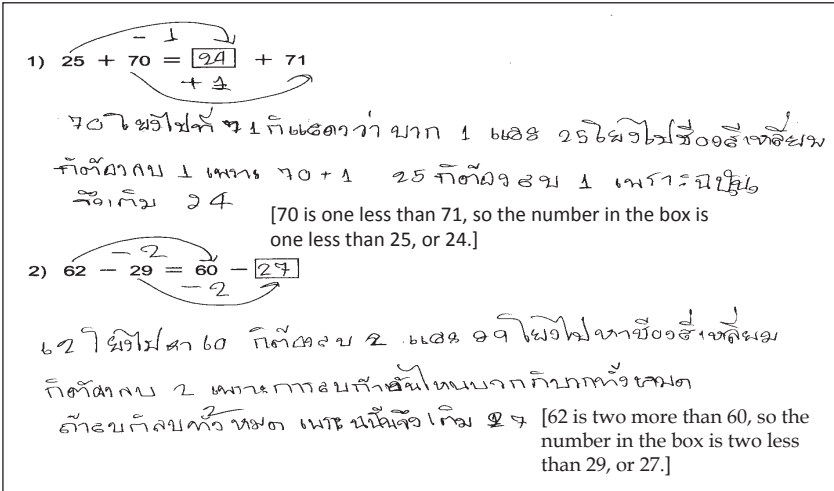 − 1
1) 25 + 70 = 24 + 71
+ 1
70 โยงไปที่ 71 ก็แสดงว่า บวก 1 และ 25 โยงไปช่องสี่เหลี่ยม
ก็ต้องลบ 1 เพราะ 70 + 1 25 ก็ต้องลบ 1 เพราะ
จึงเติม 24
[70 is one less than 71, so the number in the box is
one less than 25, or 24.]
− 2
2) 62 − 29 = 60 − 27
− 2
62 โยงไปหา 60 ก็ต้องลบ 2 และ 29 โยงไปหาช่องสี่เหลี่ยม
ก็ต้องลบ 2 เพราะการลบถ้า บวกก็บวกทั้งหมด
ถ้าลบก็ลบทั้งหมด เพราะนั้นจึงเติม 27
[62 is two more than 60, so the
number in the box is two less
than 29, or 27.]